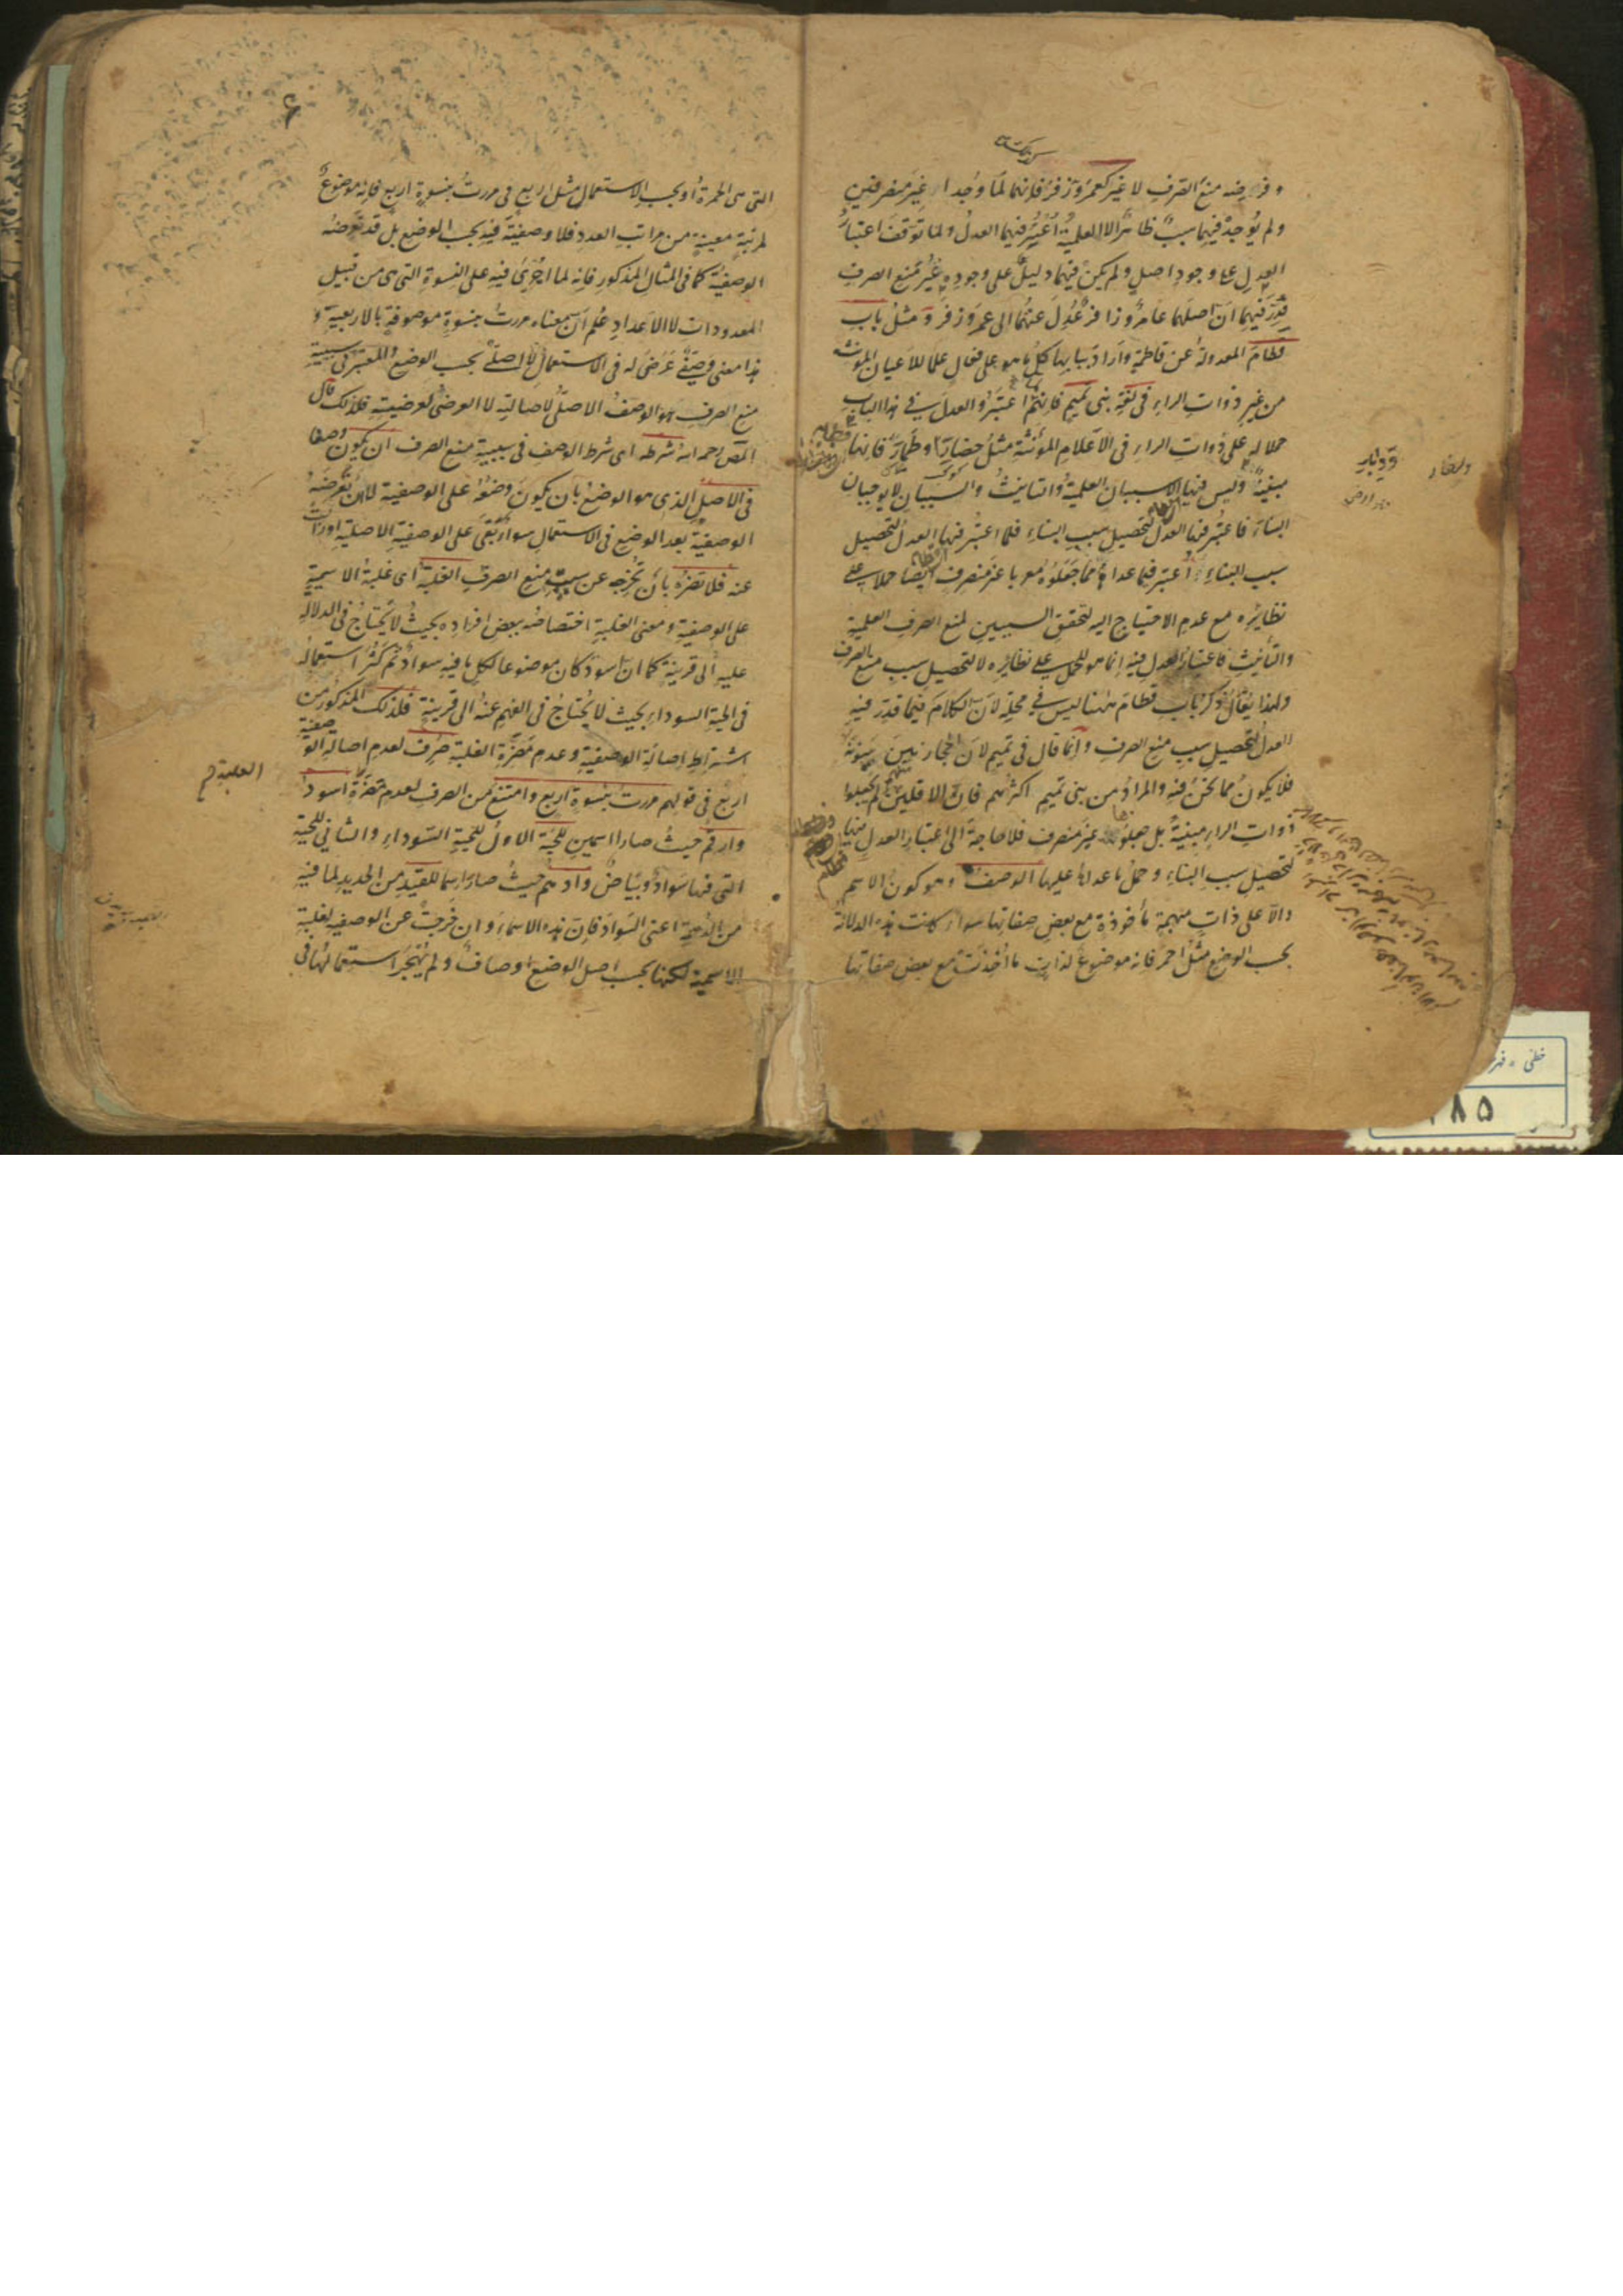 وفرضه منع الصرف لا غير كعمر وزفر فانهما لما وجدا غير منصرفين
ولم يوجد فيهما سبب ظاهر الا العلمية اعتبر فيهما العدل ولما توقف اعتبار
العدل على وجود اصل ولم يكن فيهما دليل على وجوده غير منع الصرف
قدر فيهما ان اصلهما عامر وزافر عدل عنهما الى عمر وزفر و مثل باب
قطام المعدولة عن قاطمة واراد ببابها كل ما هو على فعال علما للاعيان المونثة
من غير ذوات الراء فى لغة بنى تميم فانهم اعتبروا العدل فى هذا الباب
حملا له على ذوات الراء فى الاعلام المؤنثة مثل حضار وطمار فانها
مبنية وليس فيها الا سببان العلمية والتانيث والسببان لا يوجبان
البناء فاعتبر فيها العدل لتحصيل سبب البناء فلما اعتبر فيها العدل لتحصيل
سبب البناء اعتبر فيما عداها مما جعلوه معربا غير منصرف ايضا حملا على
نظايره مع عدم الاحتياج اليه لتحقق السببين لمنع الصرف العلمية
والتأنيث فاعتبار العدل فيه انما هو للحمل على نظايره لا لتحصيل سبب منع الصرف
ولهذا يقال ذكر باب قطام ههنا ليس فى محله لان الكلام فيما قدر فيه
العدل لتحصيل سبب منع الصرف وانما قال فى تميم لان الحجازيين يبنونه
فلا يكون مما نحن فيه والمراد من بنى تميم اكثرهم فان الاقلين منهم لم يجعلوا
ذوات الراء مبنية بل جعلوها غير منصرف فلا حاجة الى اعتبار العدل فيها
لتحصيل سبب البناء وحمل ما عداها عليها الوصف وهو كون الاسم
دالا على ذات مبهمة ماخوذة مع بعض صفاتها سواء كانت هذه الدلالة
بحسب الوضع مثل احمر فانه موضوع لذات ما اخذت مع بعض صفاتها
التى هى الحمرة او بحسب الاستعمال مثل اربع فى مررت بنسوة اربع فانه موضوع
لمرتبة معينة من مراتب العدد فلا وصفية فيه بحسب الوضع بل قد تعرضه
الوصفية كما فى المثال المذكور فانه لما اجرى فيه على النسوة التى هى من قبيل
المعدودات لا الاعداد علم ان معناه مررت بنسوة موصوفة بالاربعية و
هذا معنى وصفى عرض له فى الاستعمال لا اصلى بحسب الوضع والمعتبر فى سببية
منع الصرف هو الوصف الاصلى لاصالته لا العرضى لعرضيته فلذلك قال
المص رحمه الله شرطه اى شرط الوصف فى سببية منع الصرف ان يكون وصفا
فى الاصل الذى هو الوضع بان يكون وضعه على الوصفية لا ان تعرضه
الوصفية بعد الوضع فى الاستعمال سواء بقى على الوصفية الاصلية او زالت
عنه فلا تضره بان تخرجه عن سببية منع الصرف الغلبة اى غلبة الاسمية
على الوصفية ومعنى الغلبة اختصاصه ببعض افراده بحيث لا يحتاج فى الدلالة
عليه الى قرينة كما ان اسود كان موضوعا لكل ما فيه سواد ثم كثر استعماله
فى الحية السوداء بحيث لا يحتاج فى الفهم عنه الى قرينة فلذلك المذكور من
اشتراط اصالة الوصفية وعدم مضرة الغلبة صرف لعدم اصالة الوصفية
اربع فى قولهم مررت بنسوة اربع وامتنع من الصرف لعدم مضرة اسود
وارقم حيث صارا اسمين للحية الاول للحية السوداء والثانى للحية
التى فيها سواد وبياض وادهم حيث صار اسما للقيد من الحديد لما فيه
من الدهمة اعنى السواد فان هذه الاسماء وان خرجت عن الوصفية لغلبة
الاسمية لكنها بحسب اصل الوضع اوصاف ولم يهجر استعمالها فى
الغلبة م
خطى
٨٥